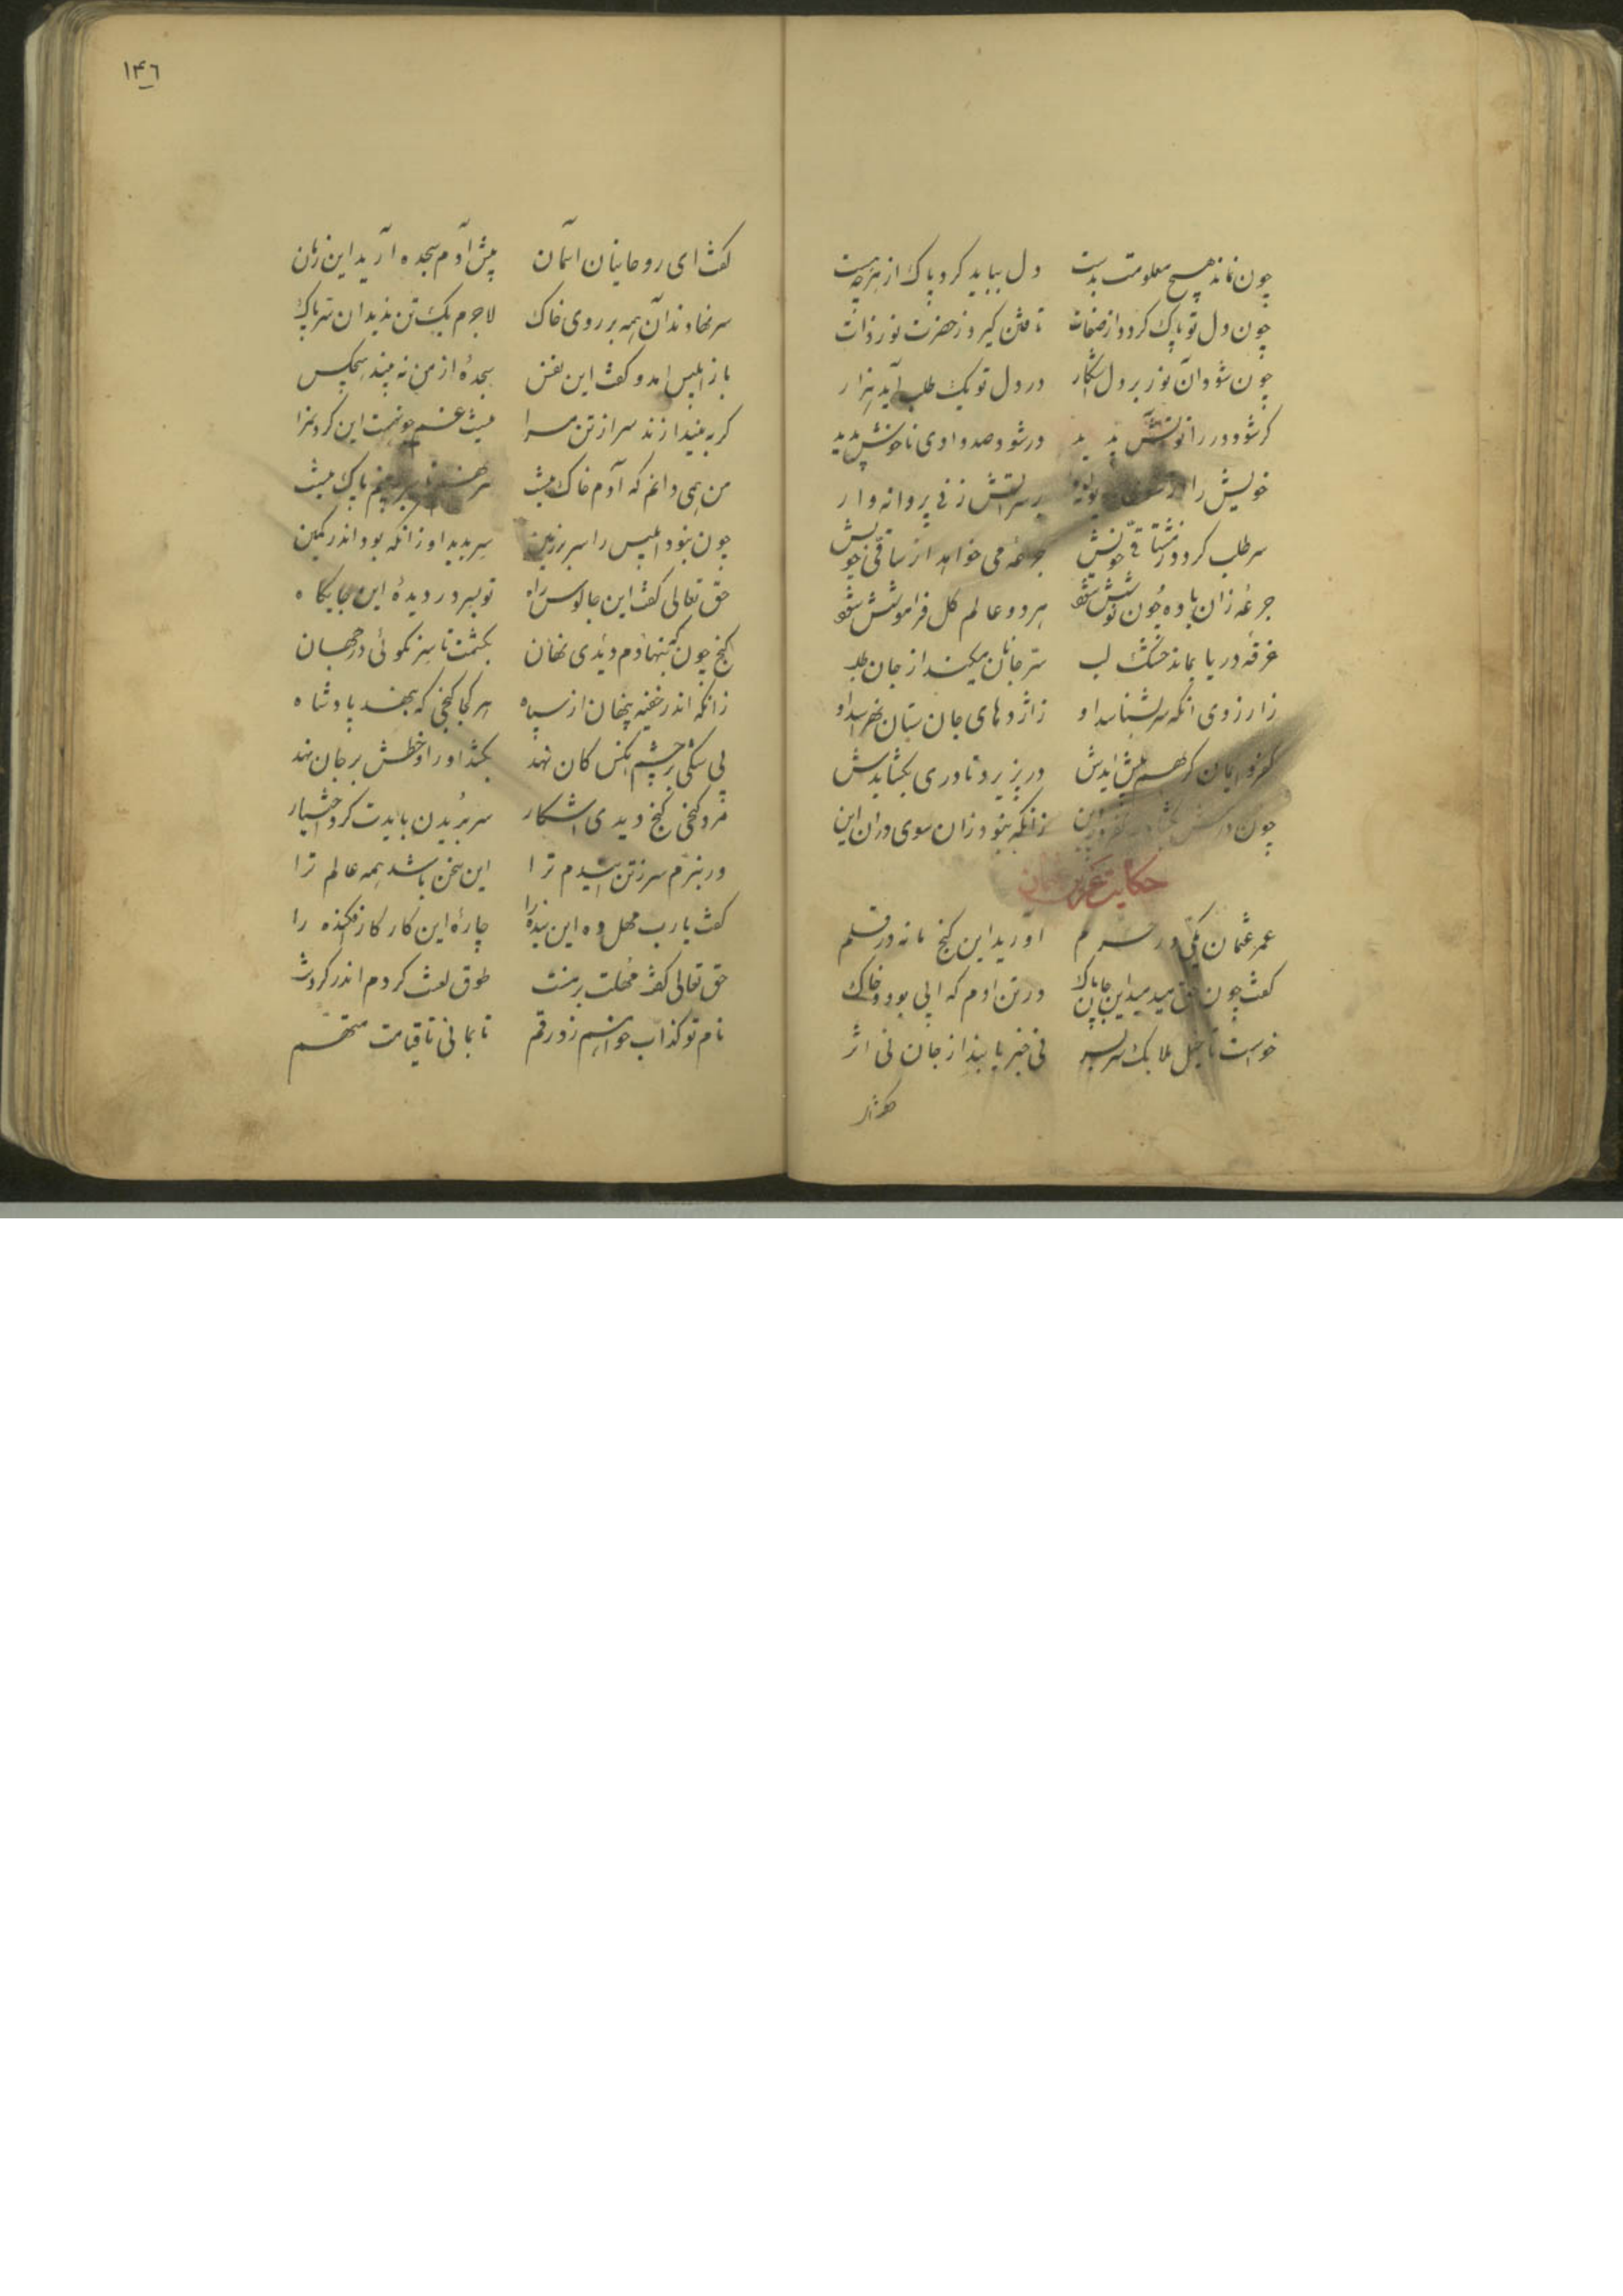 چون نماند هیچ معلومت بدست دل بباید کرد پاک از هرچه هست
چون دل تو پاک گردد از صفات تافتن گیرد ز حضرت نور ذات
چون شود آن نور بر دل آشکار در دل تو یک طلب آید هزار
گر شود در راه او آتش پدید ور شود صد وادی ناخوش پدید
خویش را از شوق او دیوانه وار بر سر آتش زند پروانه وار
سر طلب گردد ز مشتاقی خویش جرعه می خواهد از ساقی خویش
جرعه زان باده چون نوشش شود هر دو عالم کل فراموشش شود
غرقه دریا بماند خشک لب سر جانان میکند از جان طلب
ز ارزوی انکه سر بشناسد او ز اژدهای جان ستان نهراسد او
کفر و ایمان گر بهم پیش ایدش در پذیرد تا دری بگشایدش
چون درش بگشاد چه کفر و چه دین زانکه نبود زان سوی در ان این
حکایت عمر عثمان
عمر عثمان مکی در حرم اورید این گنج نامه در قلم
گفت چون حق میدمید این جان پاک در تن ادم که ابی بود و خاک
خواست تا خیل ملایک سر بسر نی خبر یابند از جان نی اثر
۱۴٦
گفت ای روحانیان اسمان پیش آدم سجده ارید این زمان
سر نهادند آن همه بر روی خاک لاجرم یک تن ندید ان سر پاک
باز ابلیس امد و گفت این نفس سجدهٔ از من نه بیند هیچکس
گر بیندازند سر از تن مرا نیست غم چون هست این گردن مرا
من همی دانم که آدم خاک نیست سر نهم تا سر ببینم باک نیست
چون نبود ابلیس را سر بر زمین سر بدید او زانکه بود اندر کمین
حق تعالی گفت این جاسوس راه تو بسر در دیدهٔ این جایگاه
گنج چون بنهادم دیدی نهان بکشمت تا سر نگوئی در جهان
زانکه اندر خفیه پنهان از سپاه هر کجا گنجی که بنهد پادشاه
بی شکی بر چشم انکس کان نهد بکشد او را و خطش بر جان نهد
مرد گنجی گنج دیدی اشکار سر بریدن بایدت کرد اختیار
ور نبرم سر ز تن این دم ترا این سخن باشد همه عالم ترا
گفت یارب مهل ده این بنده را چارهٔ این کار کار افکنده را
حق تعالی گفت مهلت بر منت طوق لعنت کردم اندر گردنت
نام تو کذاب خواهم زد رقم تا بمانی تا قیامت متهم